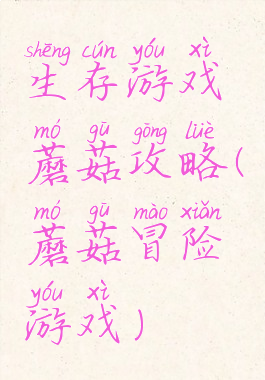 shēng cún yóu xì
生存游戏
mó gū gōng lüè
蘑菇攻略(
mó gū mào xiǎn
蘑菇冒险
yóu xì
游戏)